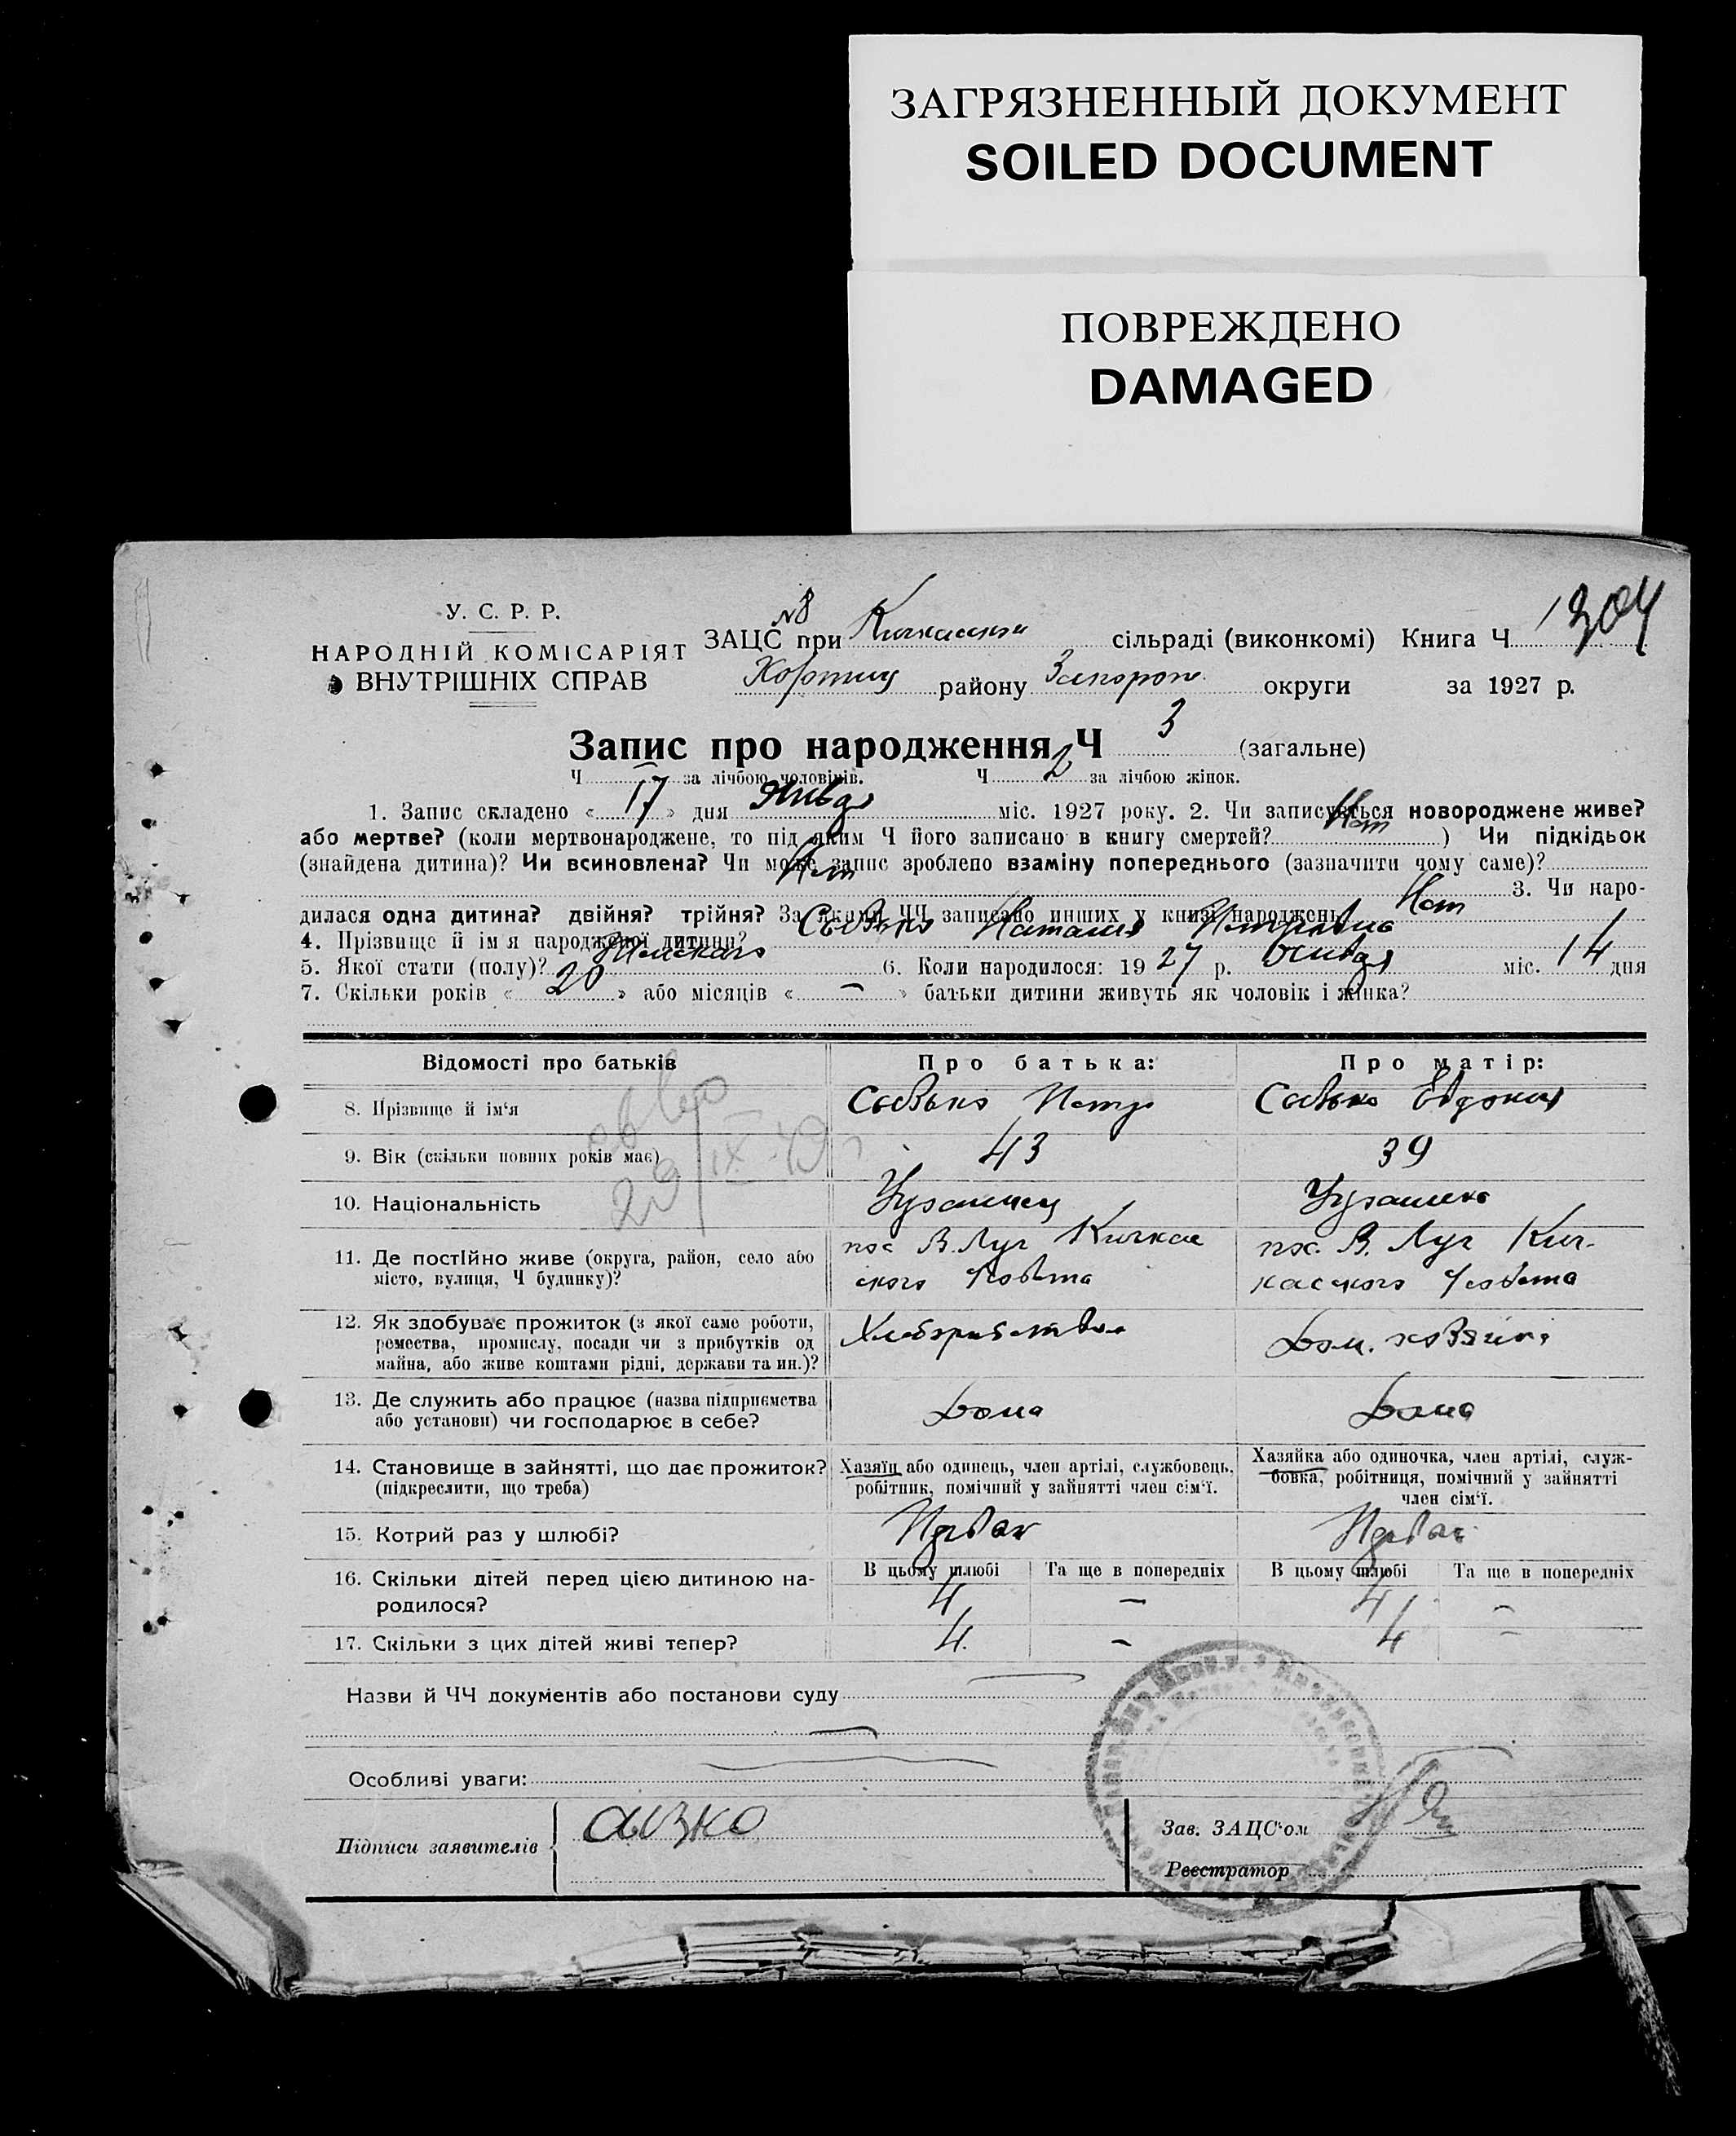 ЗАГРЯЗНЕННЫЙ ДОКУМЕНТ
SOILED DOCUMENT
ПОВРЕЖДЕНО
DAMAGED
У. С. Р. Р.
НАРОДНІЙ КОМІСАРІЯТ
ВНУТРІШНІХ СПРАВ
№ 8
ЗАЦС при Кичкасском сільраді (виконкомі) Книга Ч 1304
Хортиц району Запорож округи за 1927 р.
Запис про народження Ч 3 (загальне)
Ч — за лічбою чоловіків. Ч 2 за лічбою жінок.
1. Запис складено « 17 » дня Января міс. 1927 року. 2. Чи записується новороджене живе?
або мертве? (коли мертвонароджене, то під яким Ч його записано в книгу смертей? Нет ) Чи підкідьок
(знайдена дитина)? Чи всиновлена? Чи може запис зроблено взаміну попереднього (зазначити чому саме)?
Нет 3. Чи наро-
дилася одна дитина? двійня? трійня? За якими ЧЧ записано инших у книзі народжень Нет
4. Прізвище й імя народженої дитини? Сывько Наталия Петровна
5. Якої стати (полу)? Женскаго 6. Коли народилося: 19 27 р. Января міс. 14 дня
7. Скільки років « 20 » або місяців « — » батьки дитини живуть як чоловік і жінка?
Відомості про батьків Про батька: Про матір:
8. Прізвище й ім‘я Сывько Петр Сывько Евдокия
9. Вік (скільки повних років має) 43 39
29/IX-49 г
10. Національність Украинец Украинка
11. Де постійно живе (округа, район, село або місто, вулиця, Ч будинку)?
пос В. Луг Кичкас
ского с/совета
пос. В. Луг Кич-
касского с/совета
12. Як здобуває прожиток (з якої саме роботи,
ремества, промислу, посади чи з прибутків од
майна, або живе коштами рідні, держави та ин.)?
Хлебопашество
Дом. хозяйка
13. Де служить або працює (назва підприємства
або установи) чи господарює в себе?
Дома Дома
14. Становище в зайнятті, що дає прожиток?
(підкреслити, що треба)
Хазяїн або одинець, член артілі, службовець,
робітник, помічний у зайнятті член сім‘ї.
Хазяйка або одиночка, член артілі, служ-
бовка, робітниця, помічний у зайнятті
член сім‘ї.
15. Котрий раз у шлюбі? Первый Первый
16. Скільки дітей перед цією дитиною на-
родилося?
В цьому шлюбі Та ще в попередніх В цьому шлюбі Та ще в попередніх
4 — 4 —
17. Скільки з цих дітей живі тепер? 4. — 4 —
Назви й ЧЧ документів або постанови суду
Особливі уваги:
Підписи заявителів
Зав. ЗАЦС‘ом
Реєстратор